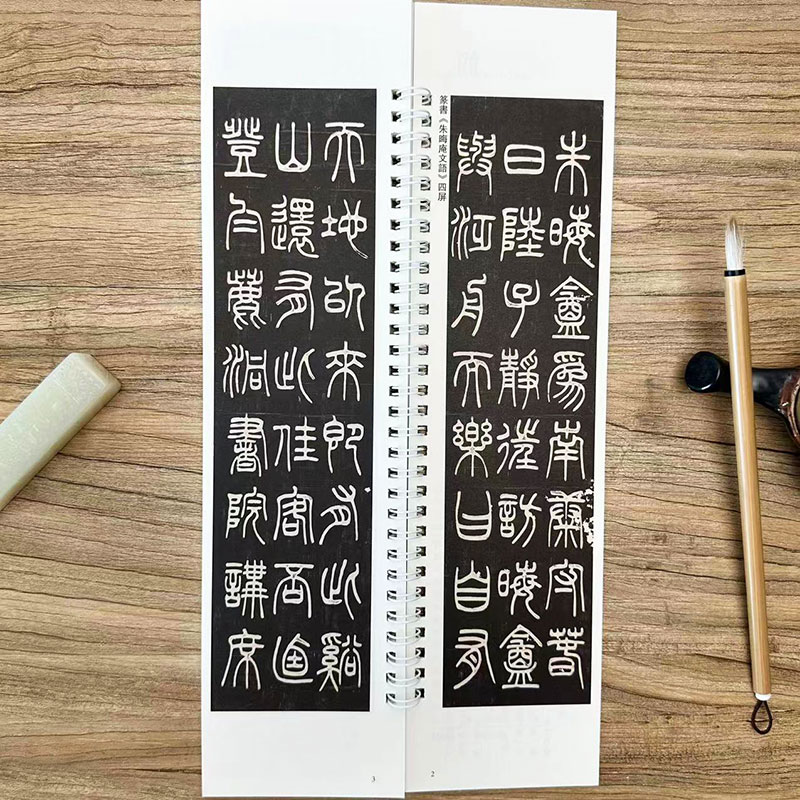 篆書《朱晦庵文語》四屏
朱晦盦為南康守萅
日陸子靜從訪晦盦
與泛舟而樂曰自有
2
天地以來即有此谿
山還有此佳客否迺
登白鹿洞書院講席
3